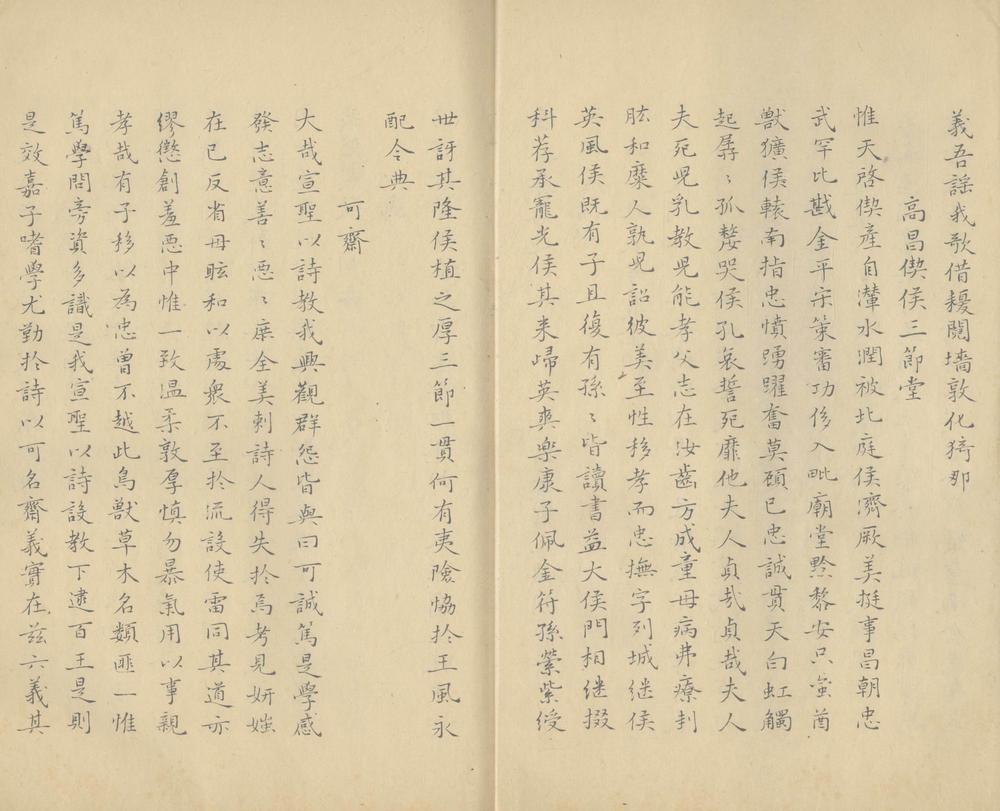 義吾謡我歌借耰鬩墻敦化猗那
高昌偰侯三節堂
惟天啓偰產自灤水潤被北庭侯濟厥美挺事昌朝忠
武罕比戡金平宋策審功侈入毗廟堂黔黎安只蛮酋
獸獷侯轅南指忠憤踴躍奮莫顧已忠誠貫天白虹觸
起孱〻孤嫠哭侯孔哀誓死靡他夫人貞哉貞哉夫人
夫死児乳教児能孝父志在汝齒方成童母病弗療刲
肱和糜人孰児詔彼美至性移孝而忠撫字列城継侯
英風侯既有子且復有孫〻皆讀書益大侯門相継掇
科荐承寵光侯其来歸英爽樂康子佩金符孫縈紫綬
世訝其隆侯植之厚三節一貫何有夷險恊扵王風永
配令典
可齋
大哉宣聖以詩教我興觀群怨皆與曰可誠篤是學感
發志意善〻悪〻庶全美刺詩人得失扵焉考見妍媸
在已反省毋眩和以處衆不至扵流設使雷同其道亦
繆懲創羞悪中惟一致温柔敦厚慎勿暴氣用以事親
孝哉有子移以為忠曾不越此鳥獸草木名類匪一惟
篤學問旁資多識是我宣聖以詩設教下逮百王是則
是效嘉子嗜學尤勤扵詩以可名齋義實在兹六義其